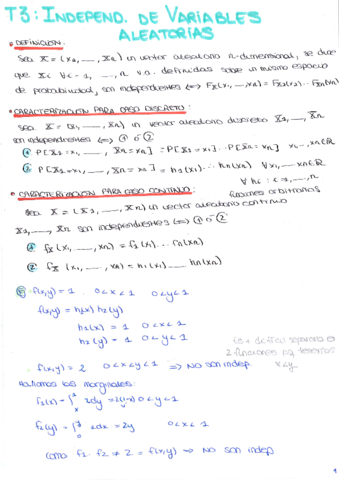 T3: INDEPEND. DE VARIABLES
ALEATORIAS
• DEFINICION:
Sea X = (X1, ..., Xn) un vector aleatorio n-dimensional, se dice
que Xi ∀i=1, ..., n v.a. definidas sobre un mismo espacio
de probabilidad, son independientes <=> Fx(x1, ..., xn) = Fx1(x1) ... Fxn(xn)
• CARACTERIZACION PARA CASO DISCRETO:
Sea X = (X1, ..., Xn) un vector aleatorio discreto X1, ..., Xn
son independientes <=> ① o ②
① P[X1=x1, ..., Xn=xn] = P[X1=x1] ... P[Xn=xn] x1, ..., xn ∈ R
② P[X1=x1, ..., Xn=xn] = h1(x1) ... hn(xn) ∀ x1, ..., xn ∈ R
∀ hi : i=1, ..., n
funciones arbitrarias
• CARACTERIZACION PARA CASO CONTINUO:
Sea X = (X1, ..., Xn) un vector aleatorio continuo
X1, ..., Xn son independientes <=> ① o ②
① fx (x1, ..., xn) = f1(x1) ... fn(xn)
② fx (x1, ..., xn) = h1(x1) ... hn(xn)
f(x,y) = 1 0<x<1 0<y<1
f(x,y) = h1(x) h2(y)
h1(x) = 1 0<x<1
h2(y) = 1 0<y<1
f(x,y) = 2 0<x<y<1 => NO son indep.
x<y
Hallamos las marginales:
f1(x) = ∫ 2dy = 2(1-x) 0<x<1
f2(y) = ∫ 2dx = 2y 0<y<1
como f1·f2 ≠ 2 = f(x,y) => NO son indep.